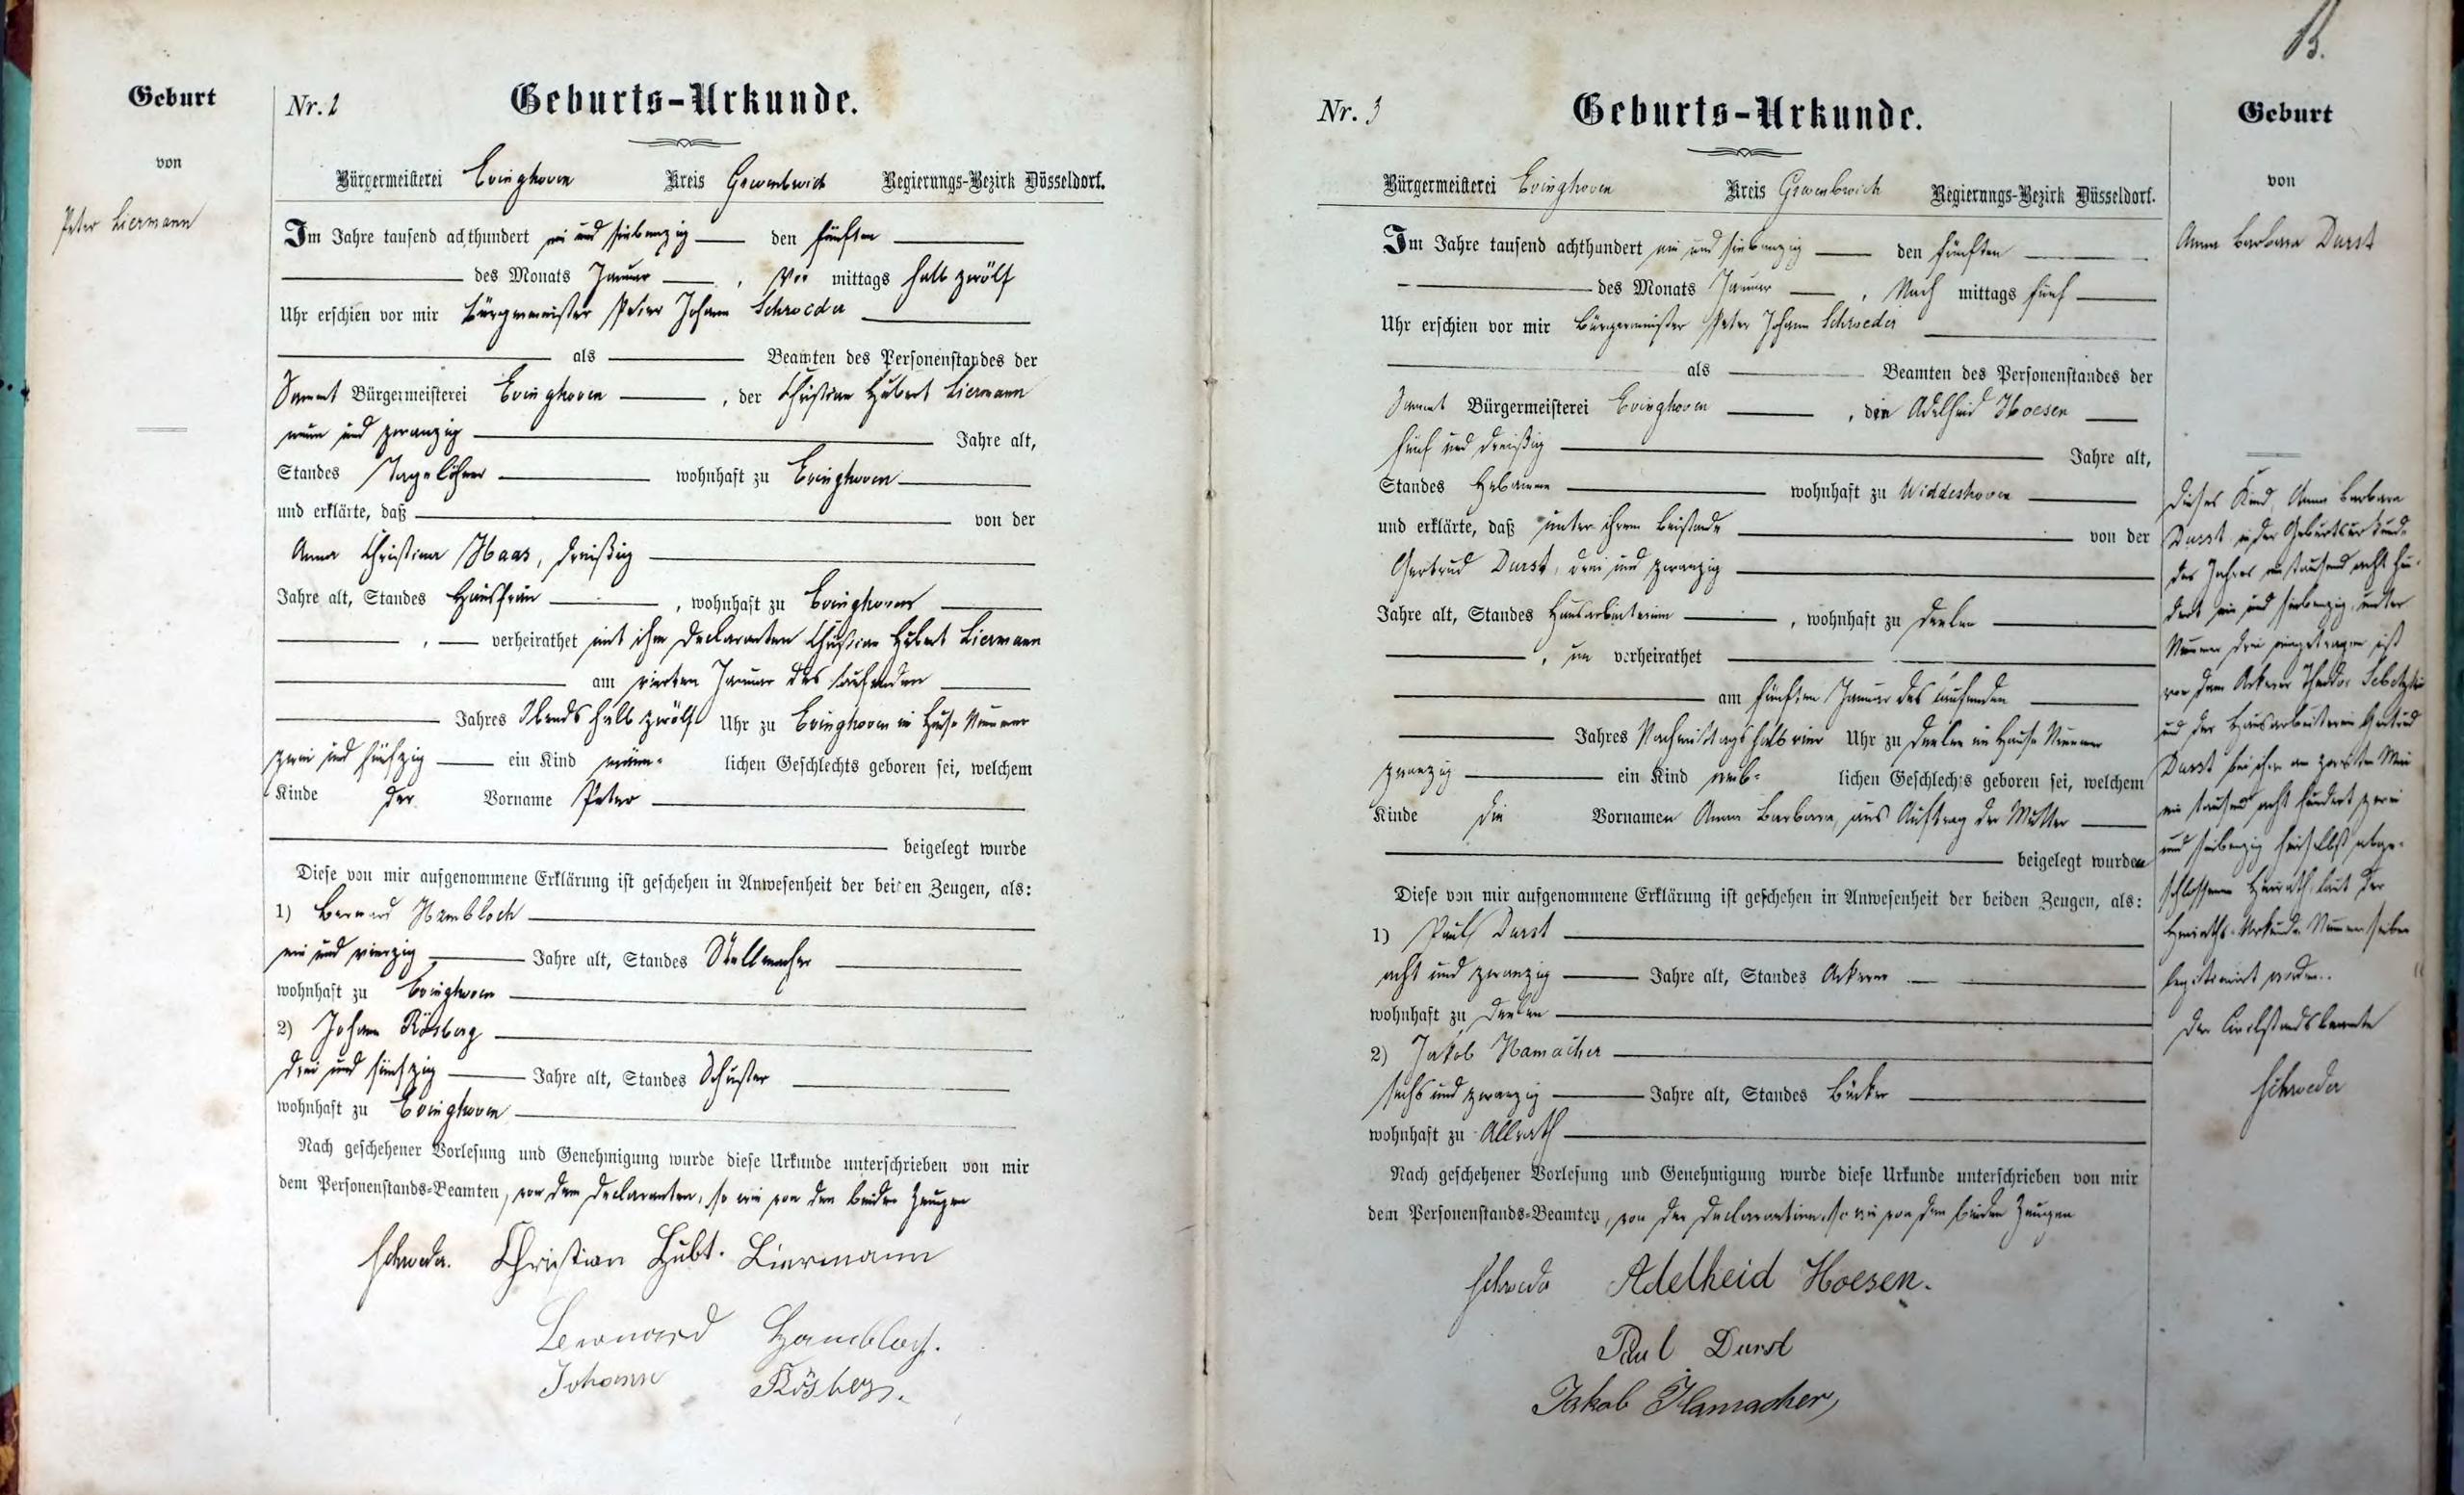 Geburt
von
Peter Liermann
Nr. 2
Geburts-Urkunde.
Bürgermeisterei Evinghoven Kreis Grevenbroich Regierungs-Bezirk Düsseldorf.
Im Jahre tausend achthundert ein und siebenzig den fünften
des Monats Januar, Vor mittags halb zwölf
Uhr erschien vor mir Bürgermeister Peter Johann Schroeder
als Beamten des Personenstandes der
Sammt Bürgermeisterei Evinghoven, der Christian Hubert Liermann
neun und zwanzig Jahre alt,
Standes Tagelöhner wohnhaft zu Evinghoven
und erklärte, daß von der
Anna Christina Haas, dreißig
Jahre alt, Standes Hausfrau, wohnhaft zu Evinghoven
, verheirathet mit ihm Declaranten Christian Hubert Liermann
am vierten Januar des laufenden
Jahres Abends halb zwölf Uhr zu Evinghoven im Hause Nummer
zwei und fünfzig ein Kind männ- lichen Geschlechts geboren sei, welchem
Kinde der Vorname Peter
beigelegt wurde
Diese von mir aufgenommene Erklärung ist geschehen in Anwesenheit der beiden Zeugen, als:
1) Bernard Hambloch
ein und vierzig Jahre alt, Standes Stellmacher
wohnhaft zu Evinghoven
2) Johann Rösberg
drei und fünfzig Jahre alt, Standes Schuster
wohnhaft zu Evinghoven
Nach geschehener Vorlesung und Genehmigung wurde diese Urkunde unterschrieben von mir
dem Personenstands-Beamten, von dem Declaranten, so wie von den beiden Zeugen
Schroeder. Christian Hubt. Liermann
Bernard Hambloch.
Johann Rösberg.
B.
Nr. 3
Geburts-Urkunde.
Bürgermeisterei Evinghoven Kreis Grevenbroich Regierungs-Bezirk Düsseldorf.
Im Jahre tausend achthundert ein und siebenzig den fünften
des Monats Januar, Nach mittags fünf
Uhr erschien vor mir Bürgermeister Peter Johann Schroeder
als Beamten des Personenstandes der
Sammt Bürgermeisterei Evinghoven, die Adelheid Hoesen
fünf und dreißig Jahre alt,
Standes Hebamme wohnhaft zu Widdeshoven
und erklärte, daß unter ihrem Beistande von der
Gertrud Durst, drei und zwanzig
Jahre alt, Standes Hausarbeiterin, wohnhaft zu Deelen
, un verheirathet
am fünften Januar des laufenden
Jahres Nachmittags halb vier Uhr zu Deelen im Hause Nummer
zwanzig ein Kind weib- lichen Geschlechts geboren sei, welchem
Kinde die Vornamen Anna Barbara, aus Auftrag der Mutter
beigelegt wurden
Diese von mir aufgenommene Erklärung ist geschehen in Anwesenheit der beiden Zeugen, als:
1) Paul Durst
acht und zwanzig Jahre alt, Standes Ackerer
wohnhaft zu Deelen
2) Jakob Hamacher
sechs und zwanzig Jahre alt, Standes Bäcker
wohnhaft zu Allrath
Nach geschehener Vorlesung und Genehmigung wurde diese Urkunde unterschrieben von mir
dem Personenstands-Beamten, von der Declarantin, so wie von den beiden Zeugen
Schroeder Adelheid Hoesen.
Paul Durst
Jakob Hamacher,
Geburt
von
Anna Barbara Durst
Dieses Kind, Anna Barbara
Durst in der Geburtsurkunde
des Jahres ein tausend acht hun-
dert ein und siebenzig unter
Nummer drei eingetragen ist
von dem Ackerer Theodor
und der Hausarbeiterin Gertrud
Durst bei ihrer am zweiten Mai
ein tausend acht hundert zwei
und siebenzig hierselbst abge-
schlossenen Heirath, laut der
Heiraths-Urkunde Nummer sieben
legitimirt worden.
Der Civilstandsbeamte
Schroeder